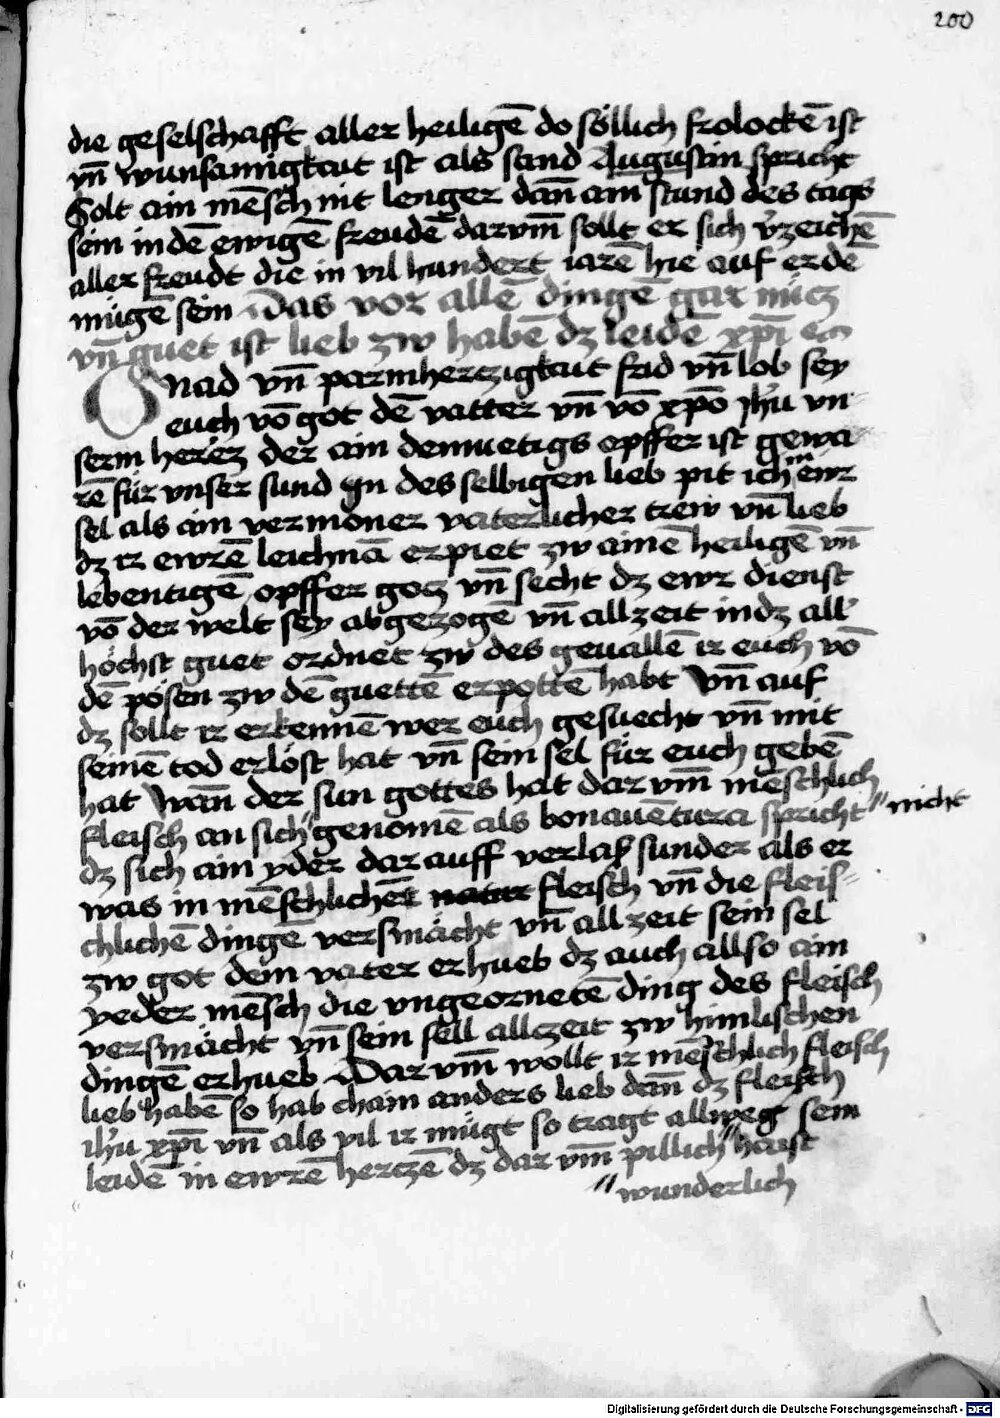 200
die geselschafft aller heiligē do söllich frolockē ist
vn̄ wunsamigkait ist als sand Augustin spricht
Solt ain mēsch nit lenger dan̄ ain stund des tags
sein in dē ewigē freudē darvm̄ sollt er sich v̓zeichē
aller freudt die in vil hundert iarē hie auf erdē
mügē sein Das vor allē dingē gar nücz
vn̄ guet ist lieb zw habē dz leidē xp̄i ec̄
Gnad vn̄ parmherczigkait frid vn̄ lob sey
euch vō got dē vatter vn̄ vō xp̄o jhū vn-
serm herēz der ain demuetigs opffer ist gewa
rē für vnser sund In des selbigen lieb pit ich ewr
sel als ain vermoner vaterlicher trew vn̄ lieb
dz ir ewrē leichnā erpiet zw ainē heiligē vn̄
lebentigē opffer gocz vn̄ secht dz ewr dienst
vō der welt sey abgezogē vn̄ allzeit in dz all'
höchst guet ordnet zw des geuallē ir euch vō
dē pösen zw dē guettē erpottē habt Vn̄ auf
dz sollt ir erkennē wer euch gesuecht vn̄ mit
seinē tod erlöst hat vn̄ sein sel für euch gebē
hat Wan̄ der sun gottes hat darvm̄ mēschlich
fleisch an sich genomē als bonauētura spricht "nicht
dz sich ain yder darauff verlaß sunder als er
was in mēschlicher natur fleisch vn̄ die fleis-
chlichē dingē versmächt vn̄ allzeit sein sel
zw got dem vater erhueb dz auch allso ain
yeder mēsch die vngeornetē ding des fleisch
versmächt vn̄ sein sell allczeit zw himlischen
dingē erhueb Darvm̄ wollt ir mēschlich fleisch
lieb habē so hab cham anders lieb dan̄ dz fleisch
ihū xp̄i vn̄ als vil ir mügt so tragt allweg sein
leidē in ewrē herczē dz darvm̄ pillich "haist
"wunderlich
Digitalisierung gefördert durch die Deutsche Forschungsgemeinschaft - DFG